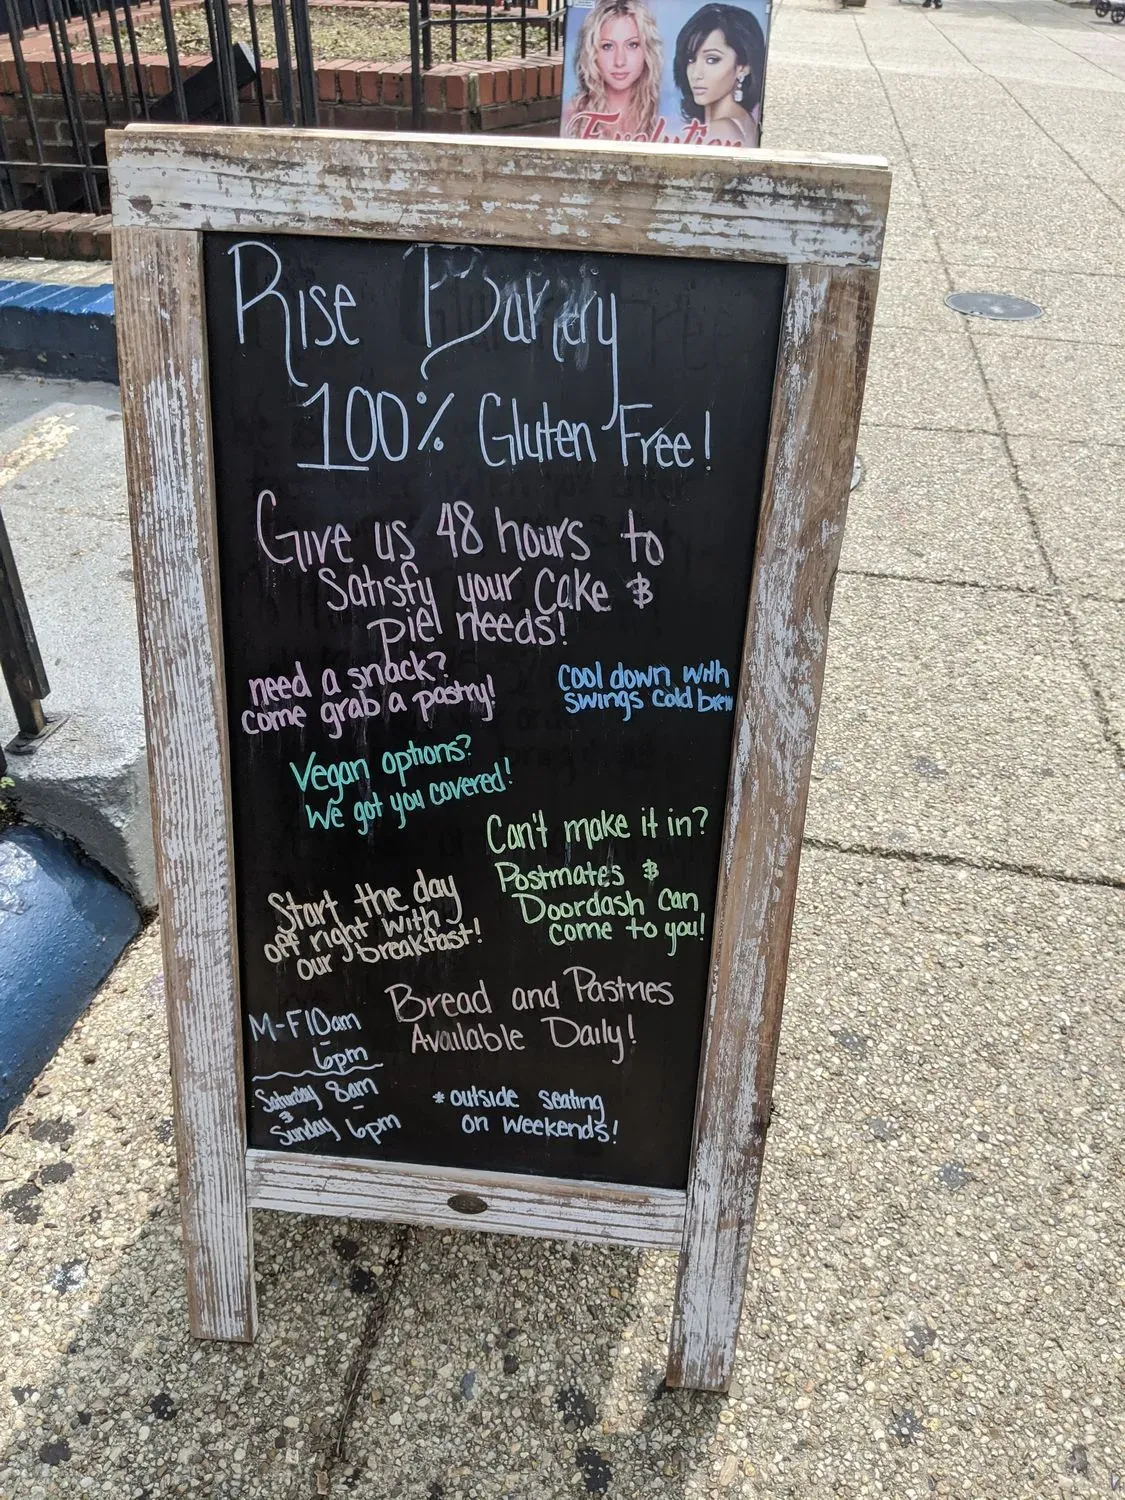 Evolution
Rise Bakery
100% Gluten Free!
Give us 48 hours to
Satisfy your Cake &
pie needs!
need a snack?
come grab a pastry!
cool down with
swings cold brew
Vegan options?
We got you covered!
Can't make it in?
Postmates &
Doordash can
come to you!
Start the day
off right with
our breakfast!
Bread and Pastries
Available Daily!
M-F 10am
-
6pm
Saturday 8am
& -
Sunday 6pm
* outside seating
on weekends!